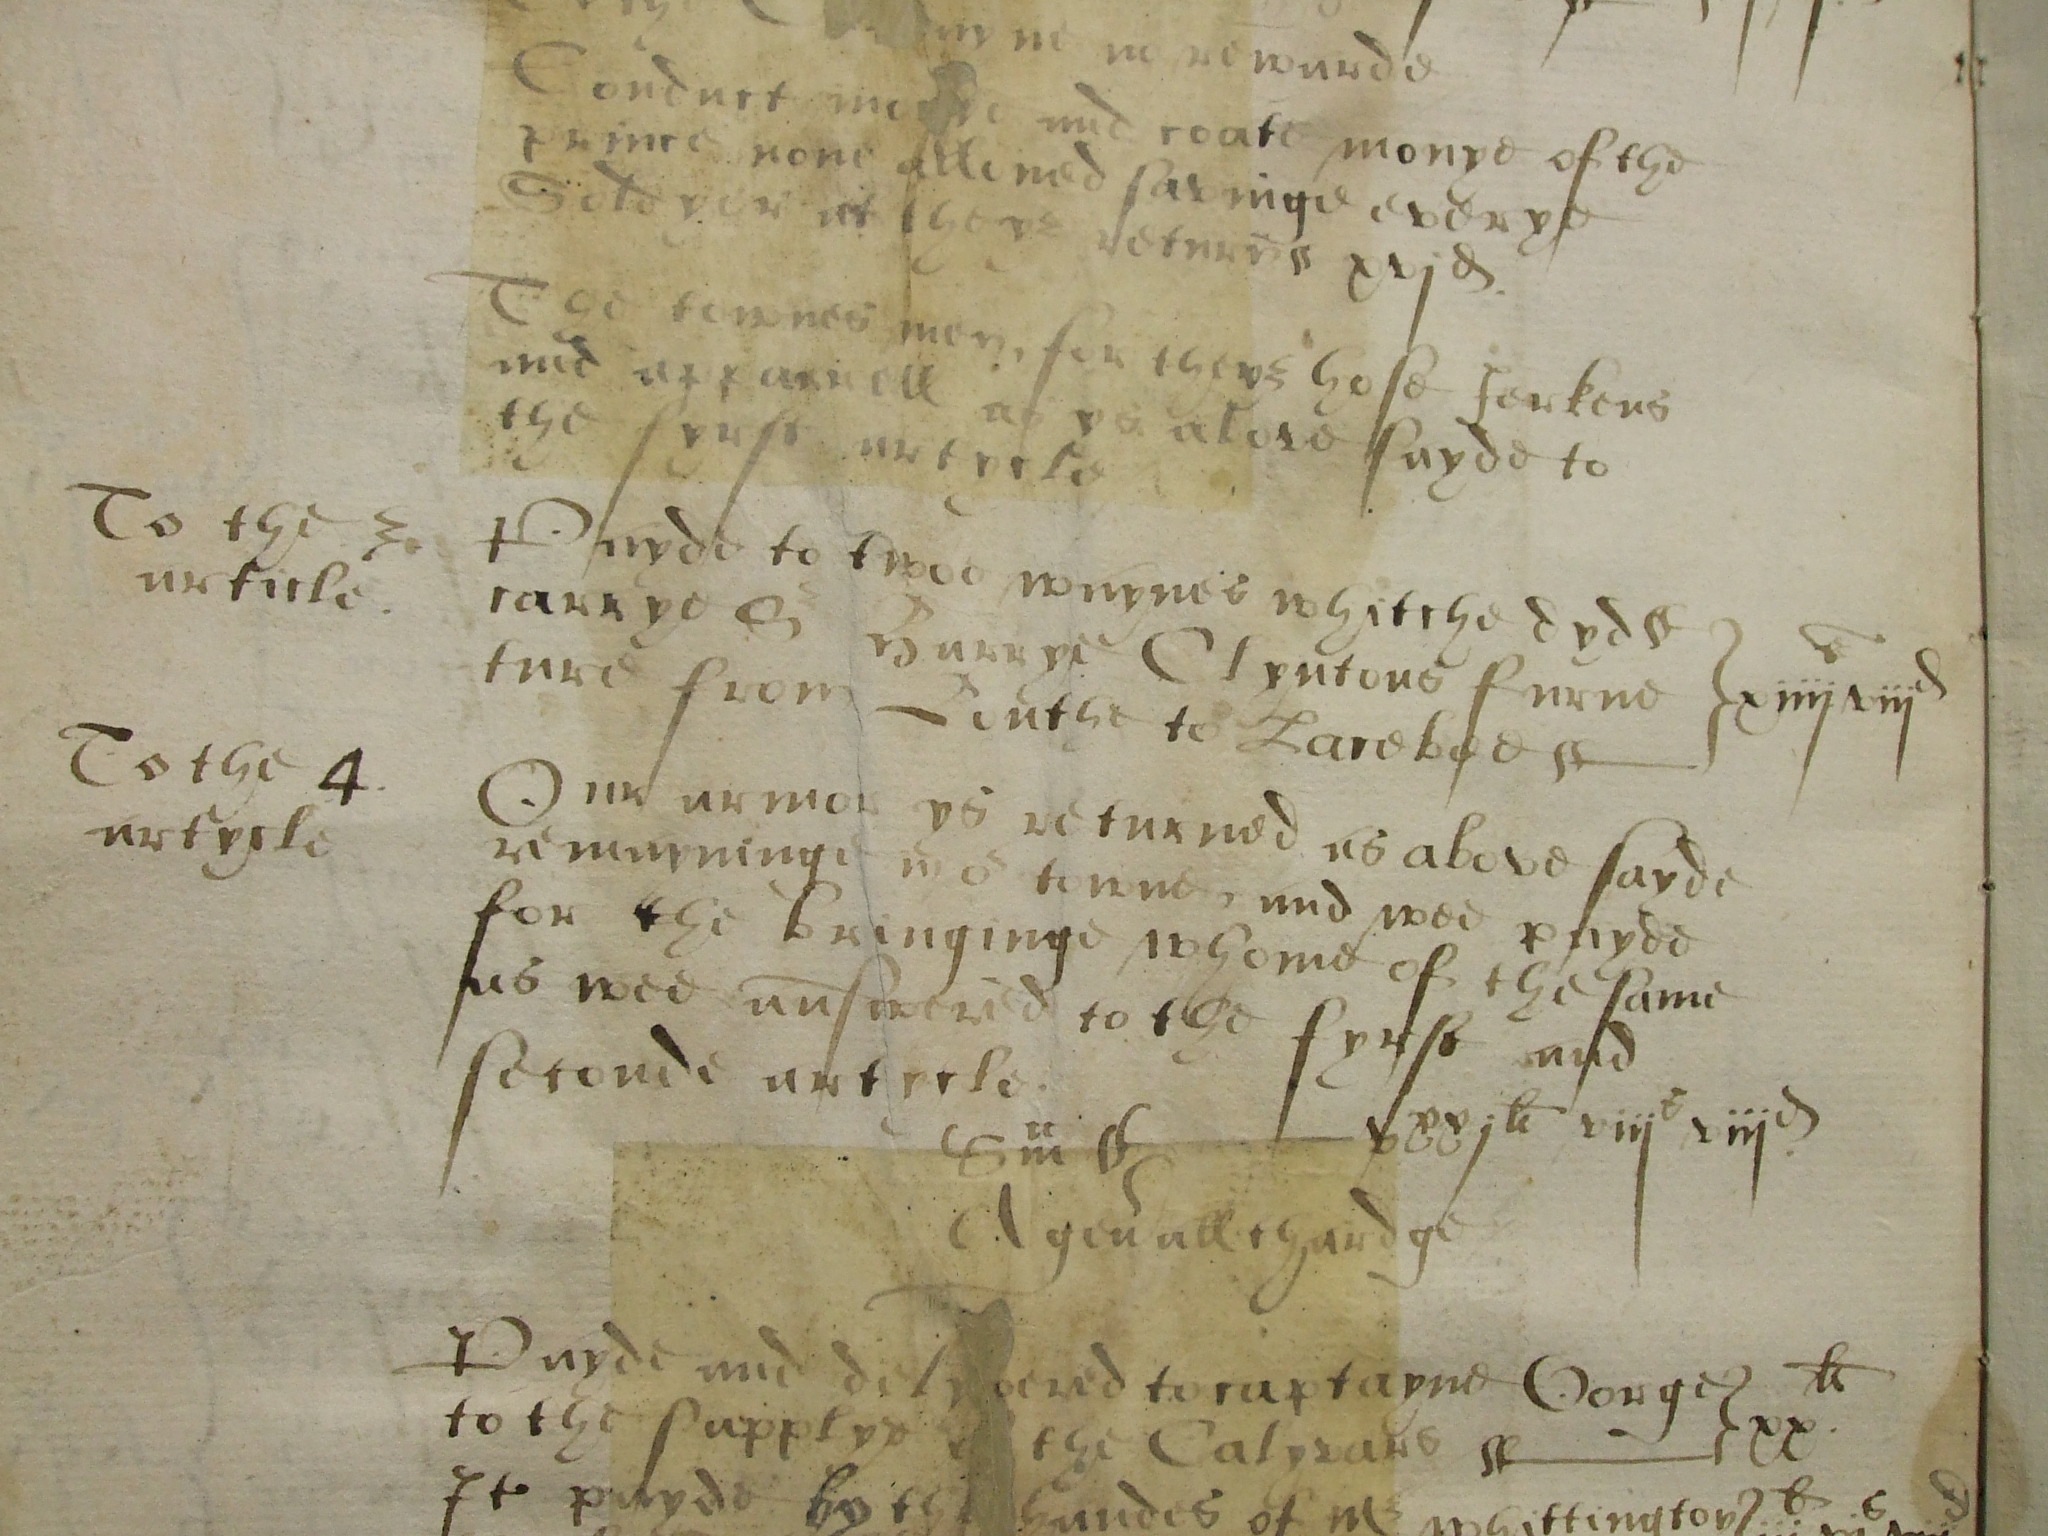 in rewarde
Conduct monye and coate monye of the
prince none allowed savinge everye
Soldyer at theyr returns xvjd.
The townes men, for theyr hose Jerkens
and apparrell as ys above sayde to
the fyrst artycle
To the 3. article.
Payde to twoe waynes whitche dyd
carrye Sr Harrye Clyntons furne
ture from Louthe to Lacebye xiiijs viijd
To the 4. artycle
Our armor ys returned as above sayde
remayninge in or towne, and wee payde
for the bringinge whome of the same
as wee answered to the fyrst and
seconde artycle.
Sm xxxjli viijs viijd
A genall chardge
Payde and delyvered to captayne Gorge
to the supplye of the Calyvars xxli
It payde by the handes of Mr Whittington